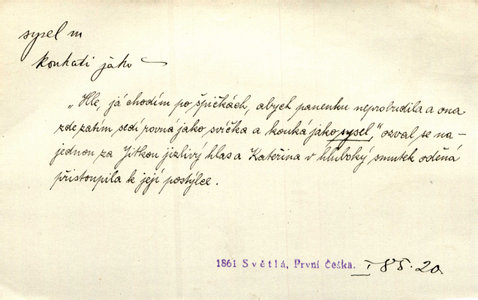 sysel m
koukati jako –
„Hle, já chodím po špičkách, abych panenku neprobudila a ona
zde zatím sedí rovná jako svíčka a kouká jako sysel," ozval se na-
jednou za Jitkou jizlivý hlas a Kateřina v hluboký smutek oděná
přistoupila k její postýlce.
1861 Světlá, První Češka. I 85.20